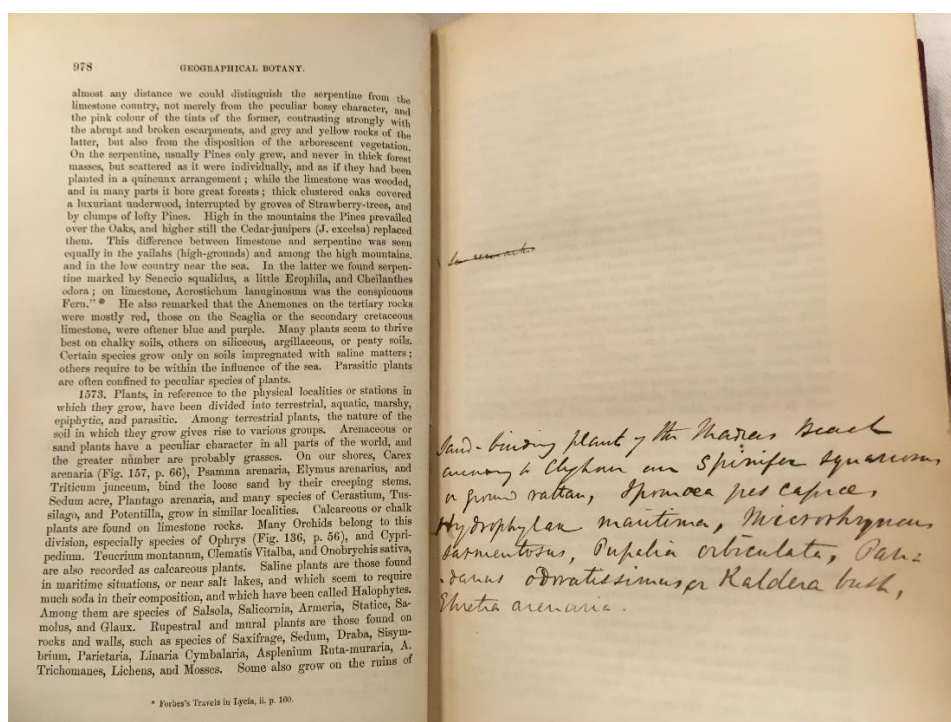 978 GEOGRAPHICAL BOTANY.
almost any distance we could distinguish the serpentine from the
limestone country, not merely from the peculiar bossy character, and
the pink colour of the tints of the former, contrasting strongly with
the abrupt and broken escarpments, and grey and yellow rocks of the
latter, but also from the disposition of the arborescent vegetation.
On the serpentine, usually Pines only grew, and never in thick forest
masses, but scattered as it were individually, and as if they had been
planted in a quincunx arrangement; while the limestone was wooded,
and in many parts it bore great forests; thick clustered oaks covered
a luxuriant underwood, interrupted by groves of Strawberry-trees, and
by clumps of lofty Pines. High in the mountains the Pines prevailed
over the Oaks, and higher still the Cedar-junipers (J. excelsa) replaced
them. This difference between limestone and serpentine was seen
equally in the yailahs (high-grounds) and among the high mountains.
and in the low country near the sea. In the latter we found serpen-
tine marked by Senecio squalidus, a little Erophila, and Cheilanthes
odora; on limestone, Acrostichum lanuginosum was the conspicuous
Fern." * He also remarked that the Anemones on the tertiary rocks
were mostly red, those on the Scaglia or the secondary cretaceous
limestone, were oftener blue and purple. Many plants seem to thrive
best on chalky soils, others on siliceous, argillaceous, or peaty soils.
Certain species grow only on soils impregnated with saline matters;
others require to be within the influence of the sea. Parasitic plants
are often confined to peculiar species of plants.
1573. Plants, in reference to the physical localities or stations in
which they grow, have been divided into terrestrial, aquatic, marshy,
epiphytic, and parasitic. Among terrestrial plants, the nature of the
soil in which they grow gives rise to various groups. Arenaceous or
sand plants have a peculiar character in all parts of the world, and
the greater number are probably grasses. On our shores, Carex
arenaria (Fig. 157, p. 66), Psamma arenaria, Elymus arenarius, and
Triticum junceum, bind the loose sand by their creeping stems.
Sedum acre, Plantago arenaria, and many species of Cerastium, Tus-
silago, and Potentilla, grow in similar localities. Calcareous or chalk
plants are found on limestone rocks. Many Orchids belong to this
division, especially species of Ophrys (Fig. 136, p. 56), and Cypri-
pedium. Teucrium montanum, Clematis Vitalba, and Onobrychis sativa,
are also recorded as calcareous plants. Saline plants are those found
in maritime situations, or near salt lakes, and which seem to require
much soda in their composition, and which have been called Halophytes.
Among them are species of Salsola, Salicornia, Armeria, Statice, Sa-
molus, and Glaux. Rupestral and mural plants are those found on
rocks and walls, such as species of Saxifrage, Sedum, Draba, Sisym-
brium, Parietaria, Linaria Cymbalaria, Asplenium Ruta-muraria, A.
Trichomanes, Lichens, and Mosses. Some also grow on the ruins of
* Forbes's Travels in Lycia, ii. p. 160.
Sand-binding plants of the Madras Beach
according to Cleghorn are Spinifex squarrosus
or ground rattan, Ipomoea pes caprae,
Hydrophylax maritima, Microrhyncus
sarmentosus, Pupalia orbiculata, Pan-
-danus odoratissimus or Kaldera bush,
Ehretia arenaria.